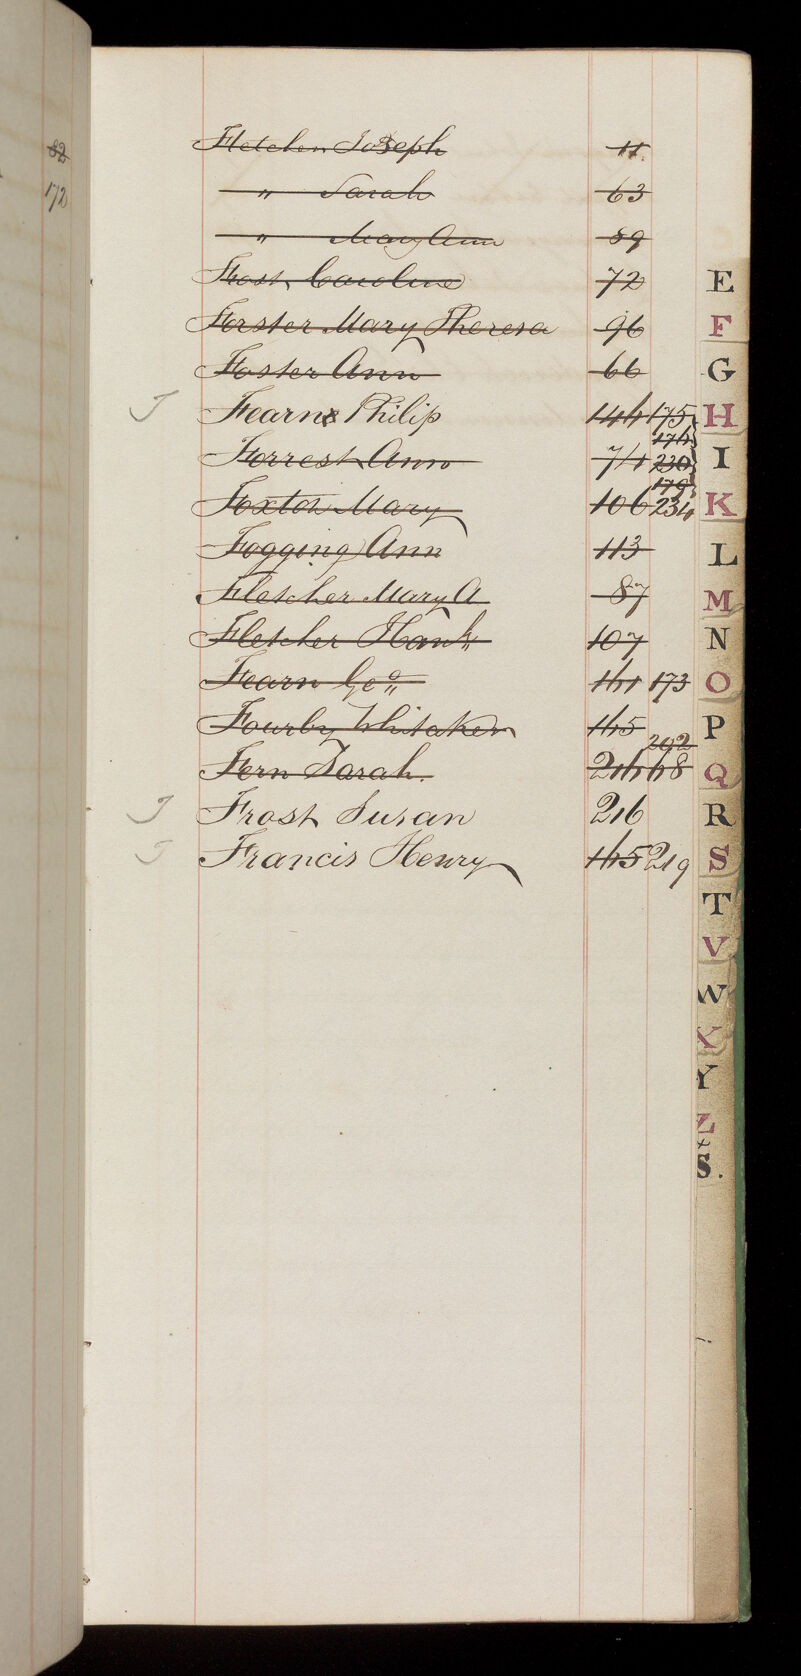 82
172
Fletcher Joseph 11.
" Sarah 63
" Mary Ann 89
Frost Caroline 72
Forster Mary Theresa 96
Foster Ann 66
J Fearne Philip 146 175
176
Forrest Ann 74 230
179
Foxton Mary 106 234
Fogging Ann 113
Fletcher Mary A 87
Fletcher Hanh 107
Fearn Geo 161 173
Fourby Whitaker 165
202
Fern Sarah. 216 68
J Frost Susan 216
J Francis Henry 165 219
E
F
G
H
I
K
L
M
N
O
P
Q
R
S
T
V
W
X
Y
Z
&
S.